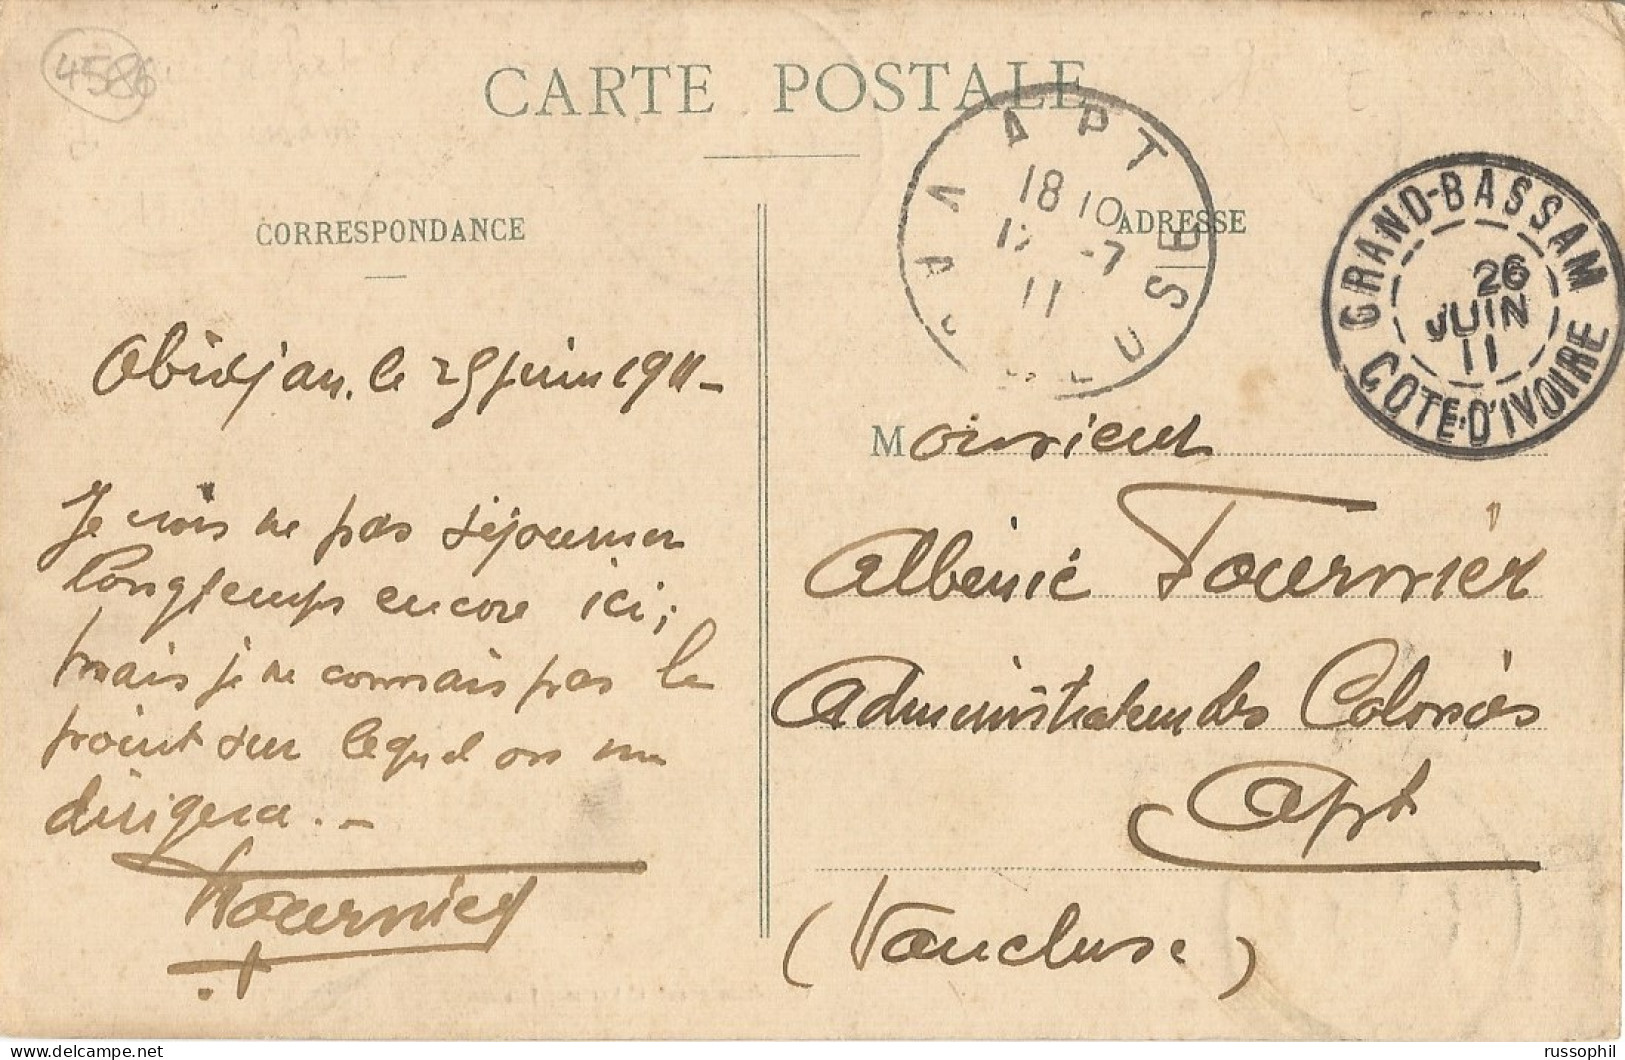 4586
CARTE POSTALE
APT
VAUCLUSE
18 10
-7
11
GRAND-BASSAM
26
JUIN
11
COTE-D'IVOIRE
CORRESPONDANCE
Abidjan, le 25 juin 1911 -
Je crois ne pas séjourner
longtemps encore ici;
mais je ne connais pas le
point sur lequel on me
dirigera. -
Fournier
ADRESSE
Monsieur
Albéric Fournier
Administrateur des Colonies
Apt
(Vaucluse)
russophil